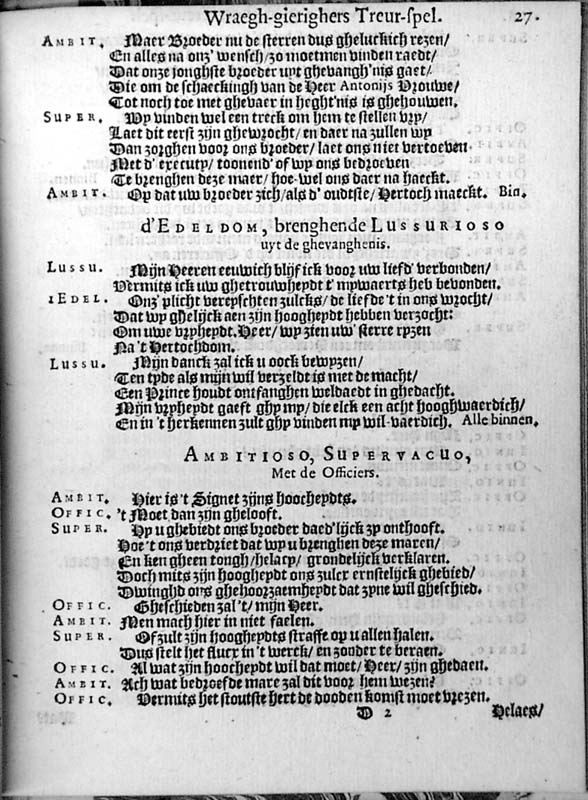 Wraegh-gierighers Treur-spel. 27.
AMBIT. Maer Broeder nu de sterren dus gheluckich rezen/
En alles na onz' wensch/ zo moetmen vinden raedt/
Dat onze jonghste broeder uyt ghevangh'nis gaet/
Die om de schaeckingh van de Heer Antonijs Vrouwe/
Tot noch toe met ghevaer in heght'nis is ghehouwen.
SUPER. Wy vinden wel een treck om hem te stellen vry/
Laet dit eerst zijn ghewrocht/ en daer na zullen wy
Dan zorghen voor ons broeder/ laet ons niet vertoeven
Met d' executy/ toonend' of wy ons bedroeven
Te brenghen deze maer/ hoe-wel ons daer na haeckt.
AMBIT. Op dat uw broeder zich/ als d' oudtste/ Hertoch maeckt. Bin.
d'EDELDOM, brenghende LUSSURIOSO
uyt de ghevanghenis.
LUSSU. Mijn Heeren eeuwich blijf ick voor uw liefd' verbonden/
Vermits ick uw ghetrouwheydt t' mywaerts heb bevonden.
1EDEL. Onz' plicht vereyschten zulcks/ de liefde 't in ons wrocht/
Dat wy ghelijck aen zijn hoogheydt hebben verzocht:
Om uwe vryheydt. Heer/ wy zien uw' sterre ryzen
Na 't Hertochdom.
LUSSU. Mijn danck zal ick u oock bewyzen/
Ten tyde als mijn wil verzeldt is met de macht/
Een Prince houdt ontfanghen weldaedt in ghedacht.
Mijn vryheydt gaeft ghy my/ die elck een acht hooghwaerdich/
En in 't herkennen zult ghy vinden my wil-vaerdich. Alle binnen.
AMBITIOSO, SUPERVACUO,
Met de Officiers.
AMBIT. Hier is 't Signet zijns hoocheydts.
OFFIC. 't Moet dan zijn ghelooft.
SUPER. Hy u ghebiedt ons broeder daed'lijck zy onthooft.
Hoe 't ons verdriet dat wy u brenghen deze maren/
En ken gheen tongh/ helacy/ grondelijck verklaren.
Doch mits zijn hoogheydt ons zulcx ernstelijck ghebied/
Dwinghd ons ghehoorzaemheydt dat zyne wil gheschied.
OFFIC. Gheschieden zal 't/ mijn Heer.
AMBIT. Men mach hier in niet faelen.
SUPER. Of zult zijn hoogheydts straffe op u allen halen.
Dus stelt het stucx in 't werck/ en zonder te beraen.
OFFIC. Al wat zijn hoocheydt wil dat moet/ Heer/ zijn ghedaen.
AMBIT. Ach wat bedroefde mare zal dit voor hem wezen?
OFFIC. Vermits het stoutste hert de dooden komst moet vrezen.
D 2 Helaes/